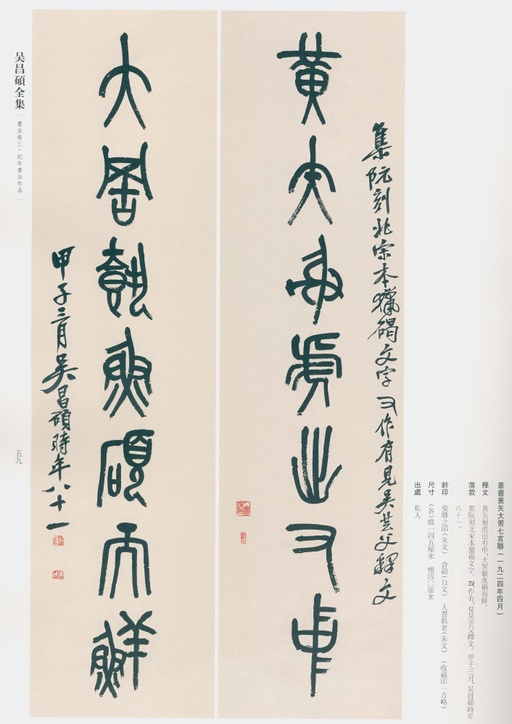 集阮刻北宋本獵碣文字又作有見吴芸父釋文
黄矢射虎出又中
大罟執魚碩而鮮
甲子三月吴昌碩時年八十一
篆書黄矢大罟七言聯（一九二四年四月）
釋文 黄矢射虎出有中，大罟執魚碩而鮮。
落款 集阮刻北宋本獵碣文字，又作有，見吴芸父釋文。甲子三月，吴昌碩時年
八十一。
鈐印 俊卿之印（朱文） 倉碩（白文） 人書俱老（朱文） （收藏印一方略）
尺寸 （各）縱一四五厘米 橫四〇厘米
出處 私人
吴昌碩全集
書法卷三·紀年書法作品
五九